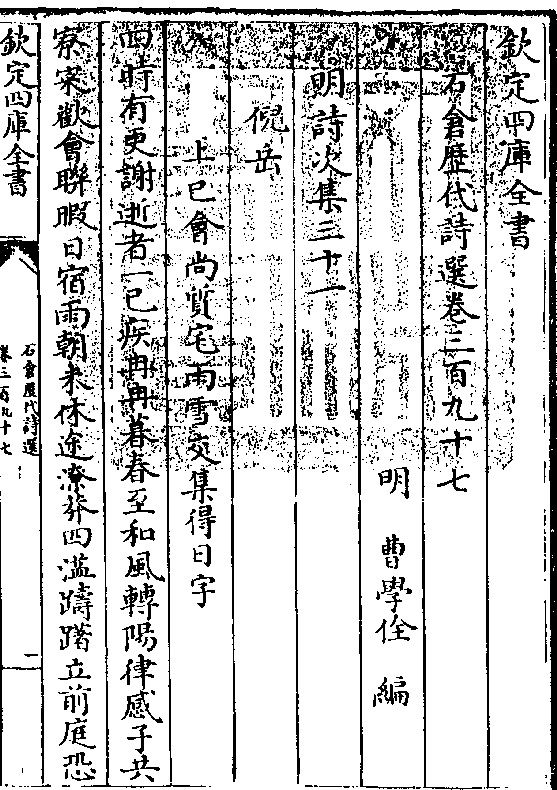 欽定四庫全書
石倉歷代詩選卷三百九十七
明 曹學佺 編
明詩次集三十一
倪岳
上巳會尚質宅雨雪交集得日字
四時有更謝逝者一已疾冉冉暮春至和風轉陽律感子共
寮寀歡會聯暇日宿雨朝未休途潦莽四溢躊躇立前庭恐
欽定四庫全書
石倉歷代詩選
卷三百九十七
一